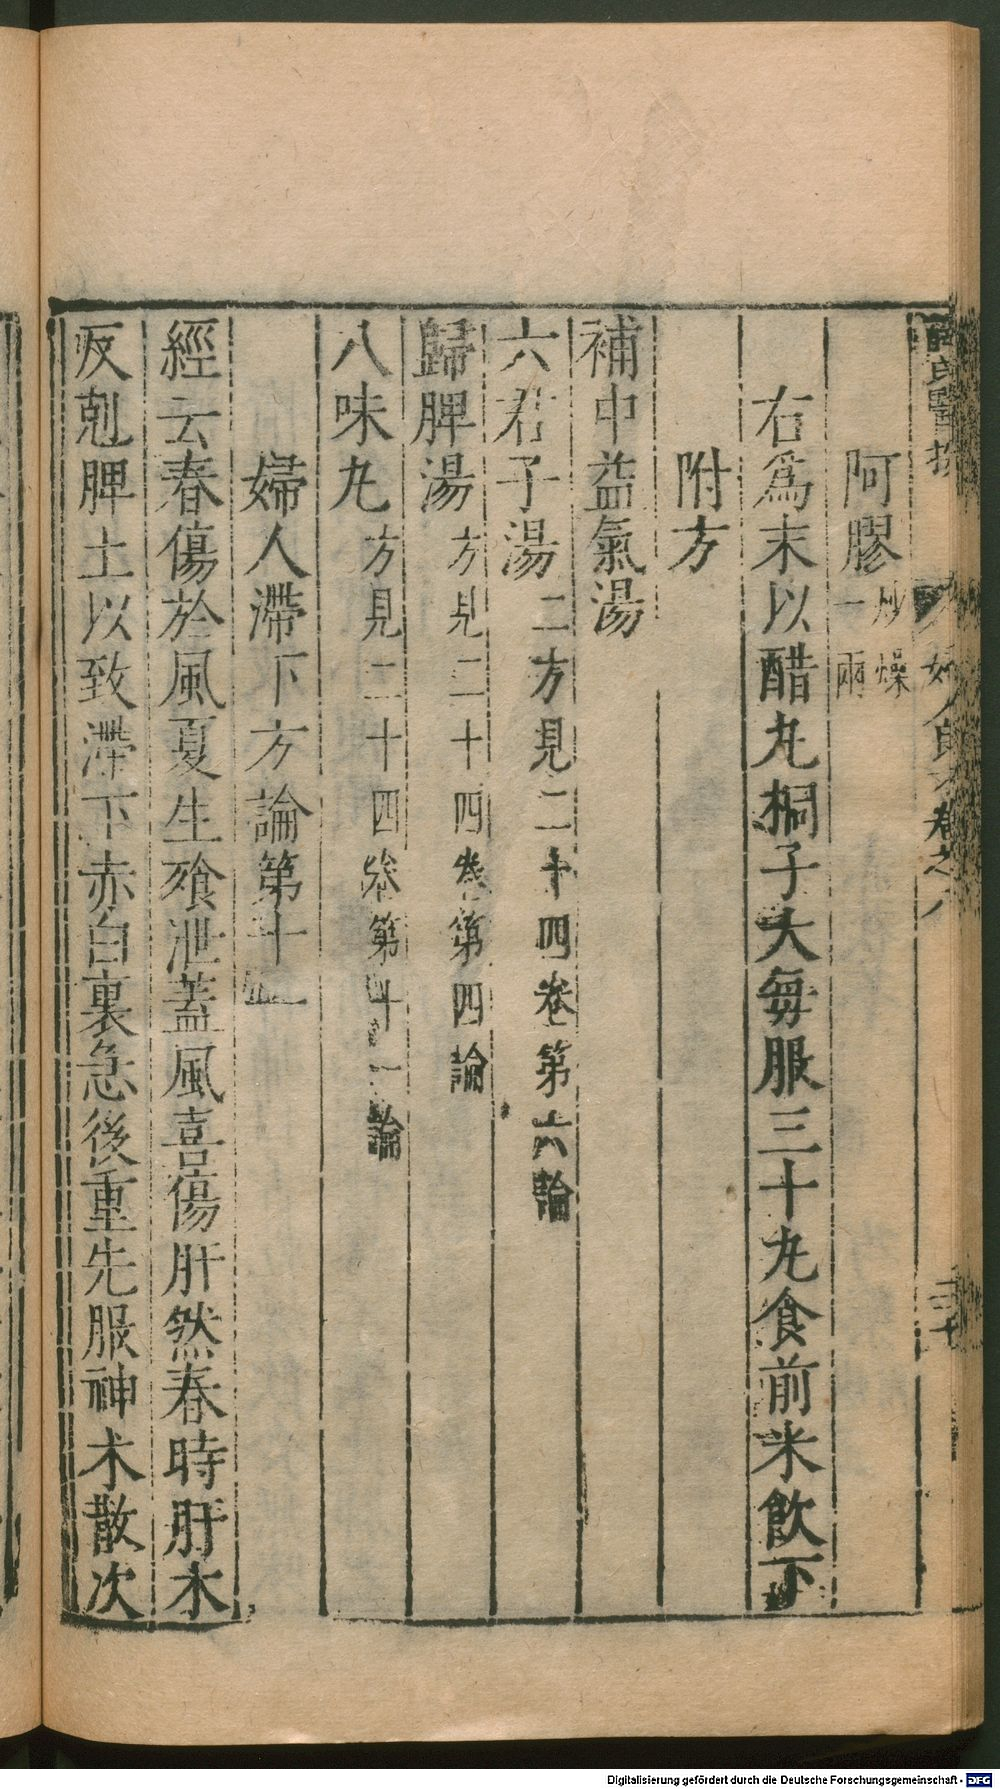 阿膠炒燥一兩
右爲末以醋丸桐子大每服三十丸食前米飲下
附方
補中益氣湯
六君子湯二方見二十四卷第六論
歸脾湯方見二十四卷第四論
八味丸方見二十四卷第十一論
婦人滯下方論第十
經云春傷於風夏生飱泄蓋風喜傷肝然春時肝木
反剋脾土以致滯下赤白裏急後重先服神朮散次
Digitalisierung gefördert durch die Deutsche Forschungsgemeinschaft - DFG